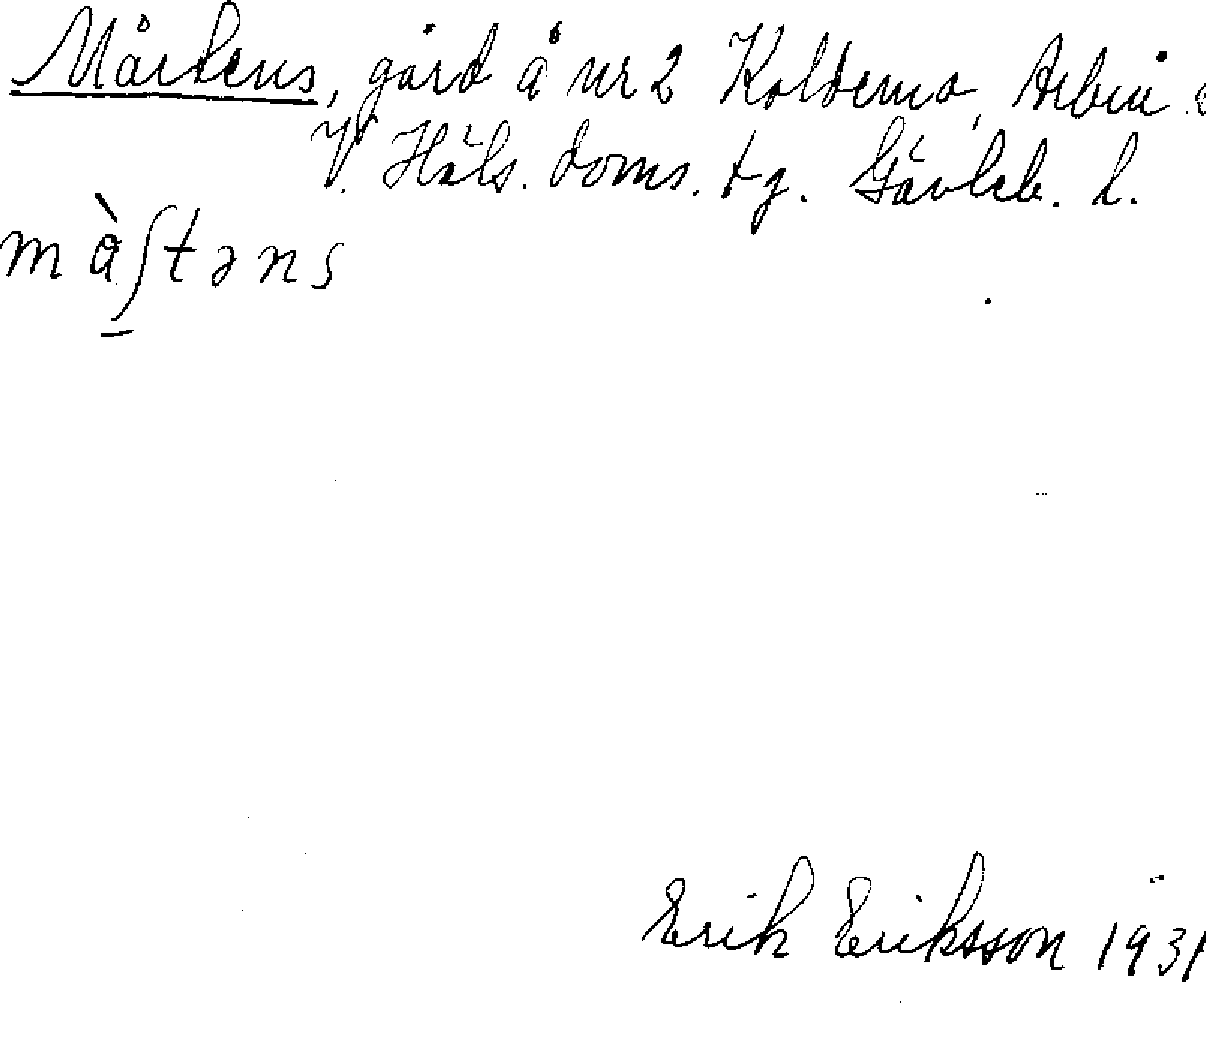 Mårtens, gård å nr 2 Kolderna, Arbrå s
V. Häls. doms. tg. Gävleb. l.
mὰʃtəns
Erik Eriksson 1931